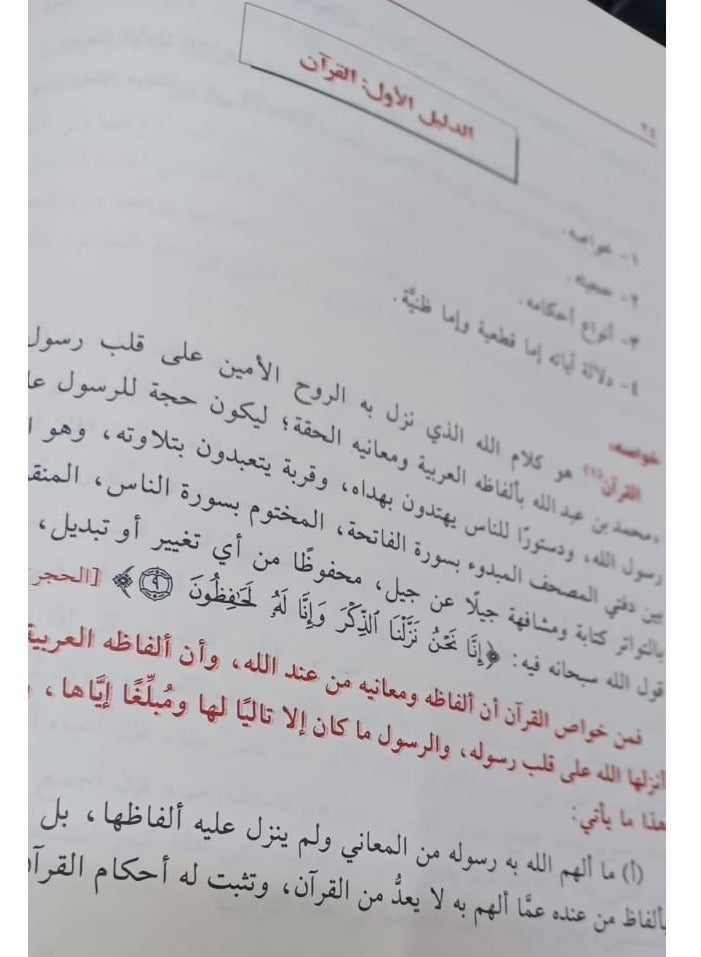 ٢٤
الدليل الأول: القرآن
١- خواصه.
٢- حجيته.
٣- أنواع أحكامه.
٤- دلالة آياته إما قطعية وإما ظنيَّة.
خواصه:
القرآن(١) هو كلام الله الذي نزل به الروح الأمين على قلب رسول
محمد بن عبد الله بألفاظه العربية ومعانيه الحقة؛ ليكون حجة للرسول
رسول الله، ودستورًا للناس يهتدون بهداه، وقربة يتعبدون بتلاوته، وهو
بين دفتي المصحف المبدوء بسورة الفاتحة، المختوم بسورة الناس،
بالتواتر كتابة ومشافهة جيلًا عن جيل، محفوظًا من أي تغيير أو تبديل،
قول الله سبحانه فيه: ﴿إِنَّا نَحْنُ نَزَّلْنَا ٱلذِّكْرَ وَإِنَّا لَهُۥ لَحَٰفِظُونَ ٩﴾ [الحجر:
فمن خواص القرآن أن ألفاظه ومعانيه من عند الله، وأن ألفاظه العربية
أنزلها الله على قلب رسوله، والرسول ما كان إلا تاليًا لها ومُبلِّغًا إيَّاها،
هذا ما يأتي:
(أ) ما ألهم الله به رسوله من المعاني ولم ينزل عليه ألفاظها، بل
بألفاظ من عنده عمَّا ألهم به لا يعدُّ من القرآن، وتثبت له أحكام القرآن